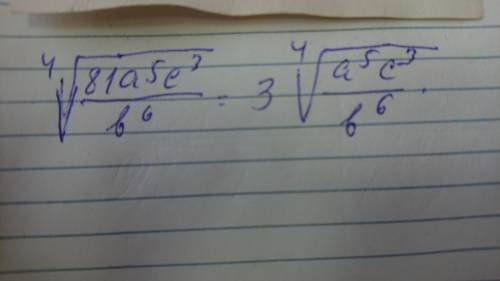 ⁴√(81a⁵c³/b⁶) = 3 ⁴√(a⁵c³/b⁶).